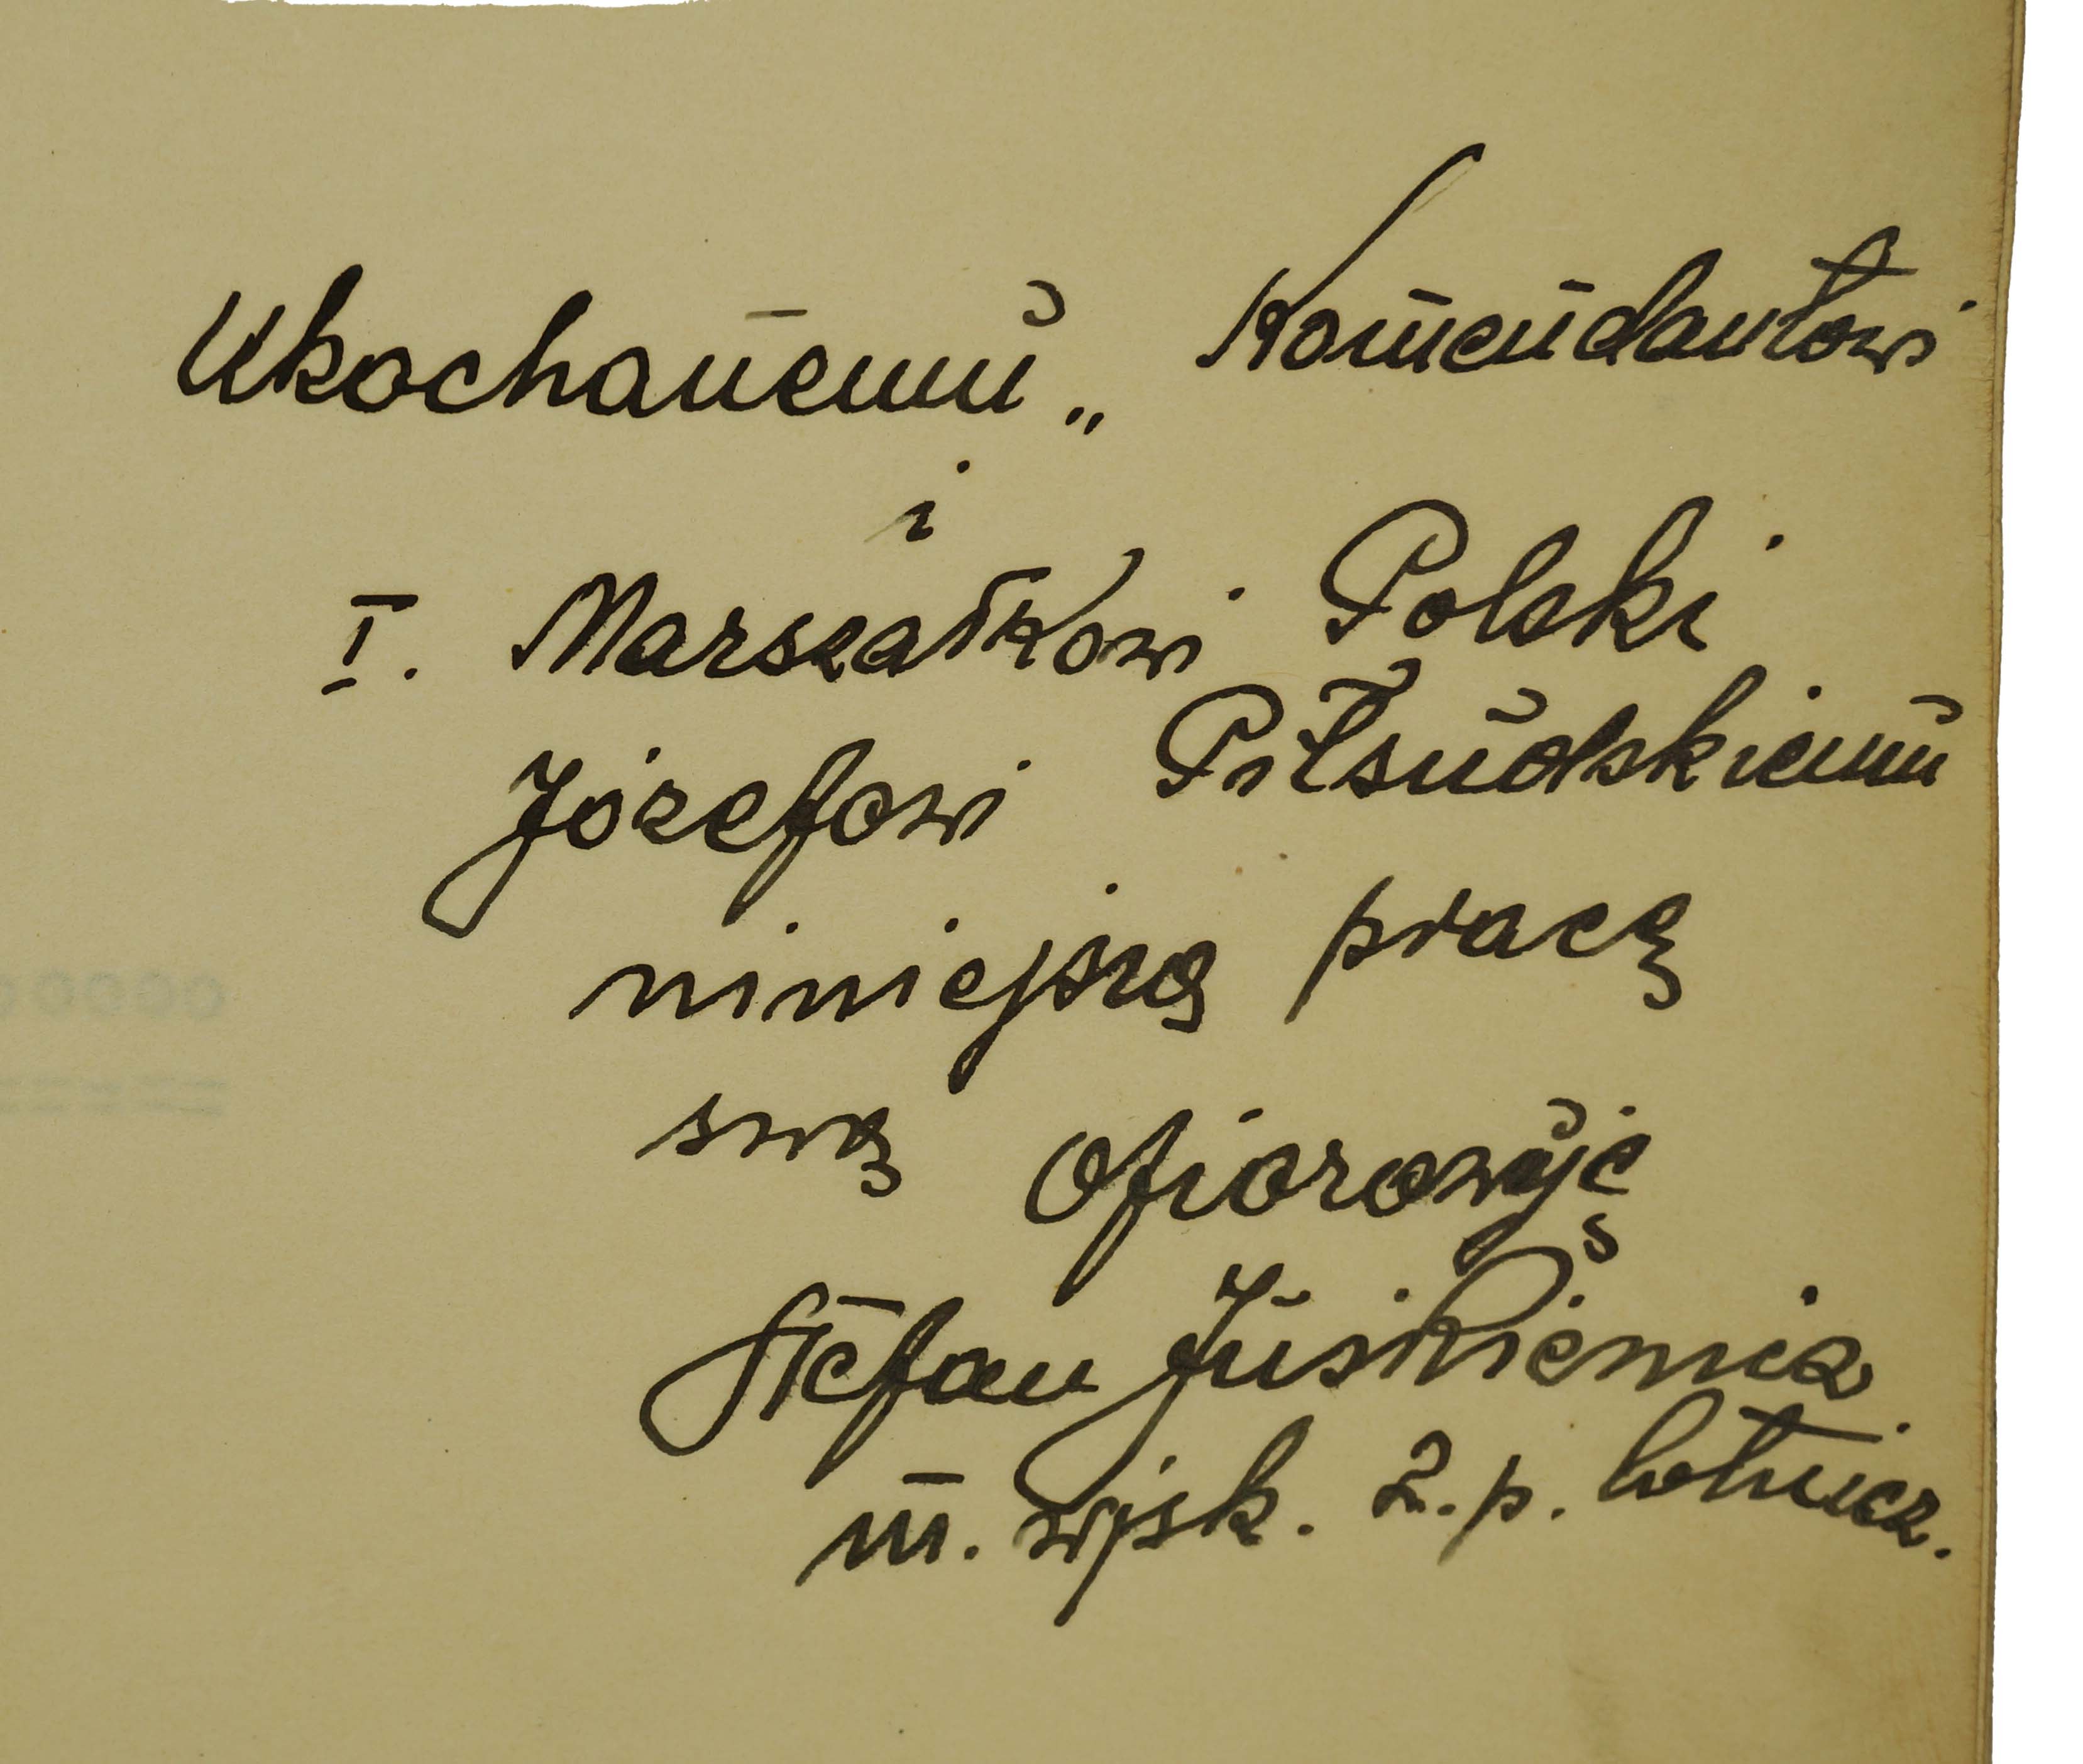 Ukochanemu „ Komendantowi
i
I. Marszałkowi Polski
Józefowi Piłsudskiemu
niniejszą pracę
swą ofiarowuję
Stefan Juśkiewicz
m. wjsk. 2. p. lotnicz.